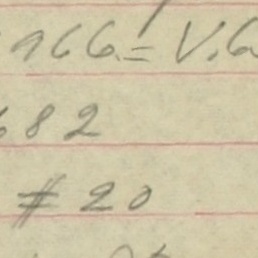 1966 = V.G
682
# 20